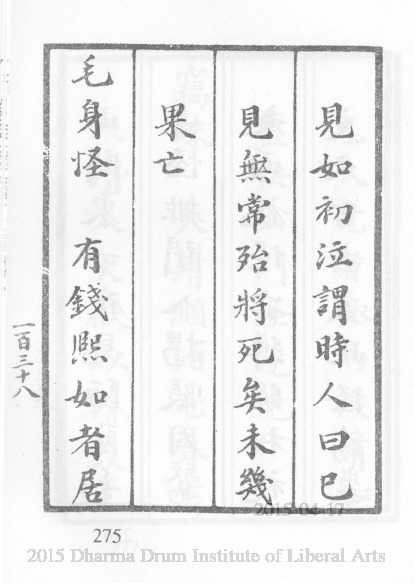 見如初泣謂時人曰已
見無常殆將死矣未幾
果亡
毛身怪　有錢熙如者居
一百三十八
275
2015-04-17
2015 Dharma Drum Institute of Liberal Arts